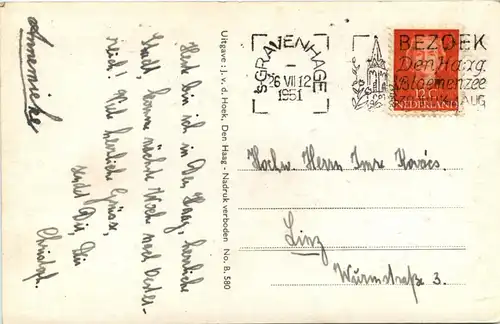 Annemieke
Heute bin ich in Den Haag, herrliche
Stadt, komme nächste Woche nach Oester-
reich! Viel herzliche Grüsse,
Christoph.
Uitgave: J. v. d. Hoek, Den Haag - Nadruk verboden No. B. 580
's-GRAVENHAGE
6 VII 12
1951
BEZOEK
Den Haag
Bloemenzee
AUG
NEDERLAND
Hochw. Herrn Imre Kovács.
Linz
Wurmstraße 3.